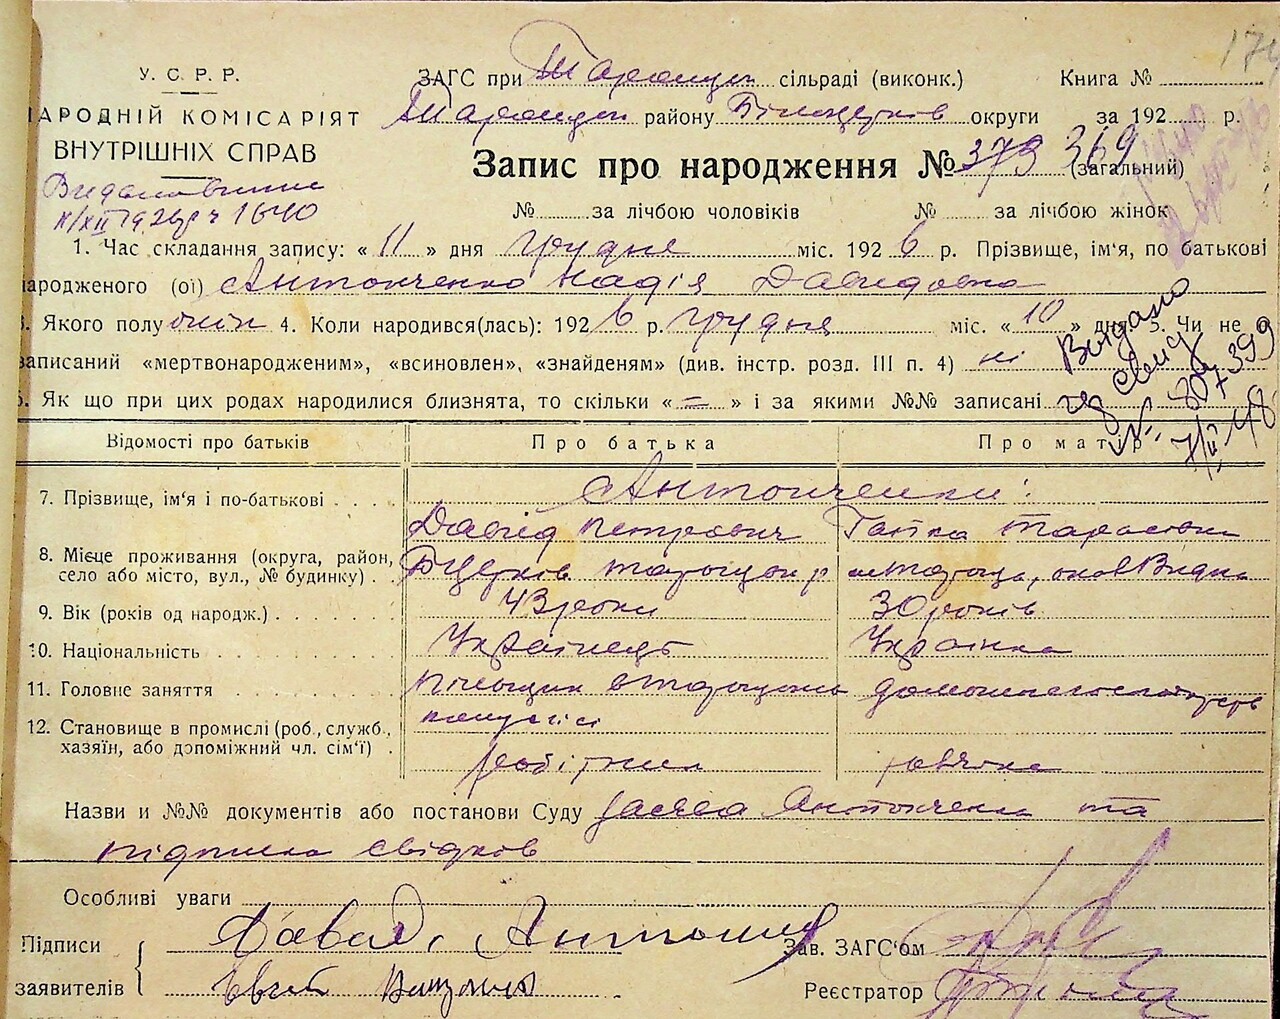 174
У. С. Р. Р.
НАРОДНІЙ КОМІСАРІЯТ
ВНУТРІШНІХ СПРАВ
ЗАГС при Таращан сільраді (виконк.) Книга №
Таращан району Білоцерків округи за 192 р.
Запис про народження № 373 369 (загальний)
ХІ/ХІІ 1926 р ч 1640
№ за лічбою чоловіків № за лічбою жінок
1. Час складання запису: « 11 » дня грудня міс. 192 6 р. Прізвище, ім'я, по батькові
народженого (ої) Антонченко Надія Давидовна
Якого полу жін 4. Коли народився(лась): 192 6 р. грудня міс. « 10 » дня. 5. Чи не є
записаний «мертвонародженим», «всиновлен», «знайденям» (див. інстр. розд. III п. 4) ні
Як що при цих родах народилися близнята, то скільки « = » і за якими №№ записані
Видано
свид
№ 807399
7/II 48
Відомості про батьків Про батька Про матір
7. Прізвище, ім'я і по-батькові Антонченки:
Давід Петрович Ганка Тарасовна
8. Місце проживання (округа, район, село або місто, вул., № будинку) БЦерків Таращан р м Тараща,
9. Вік (років од народж.) 43 роки 30 років
10. Національність Українець Українка
11. Головне заняття
12. Становище в промислі (роб., служб., хазяїн, або допоміжний чл. сім'ї) робітник
Назви и №№ документів або постанови Суду заява Антонченка та
підписи свідків
Особливі уваги
Підписи заявителів Давид Антонч
Зав. ЗАГС'ом
Реєстратор